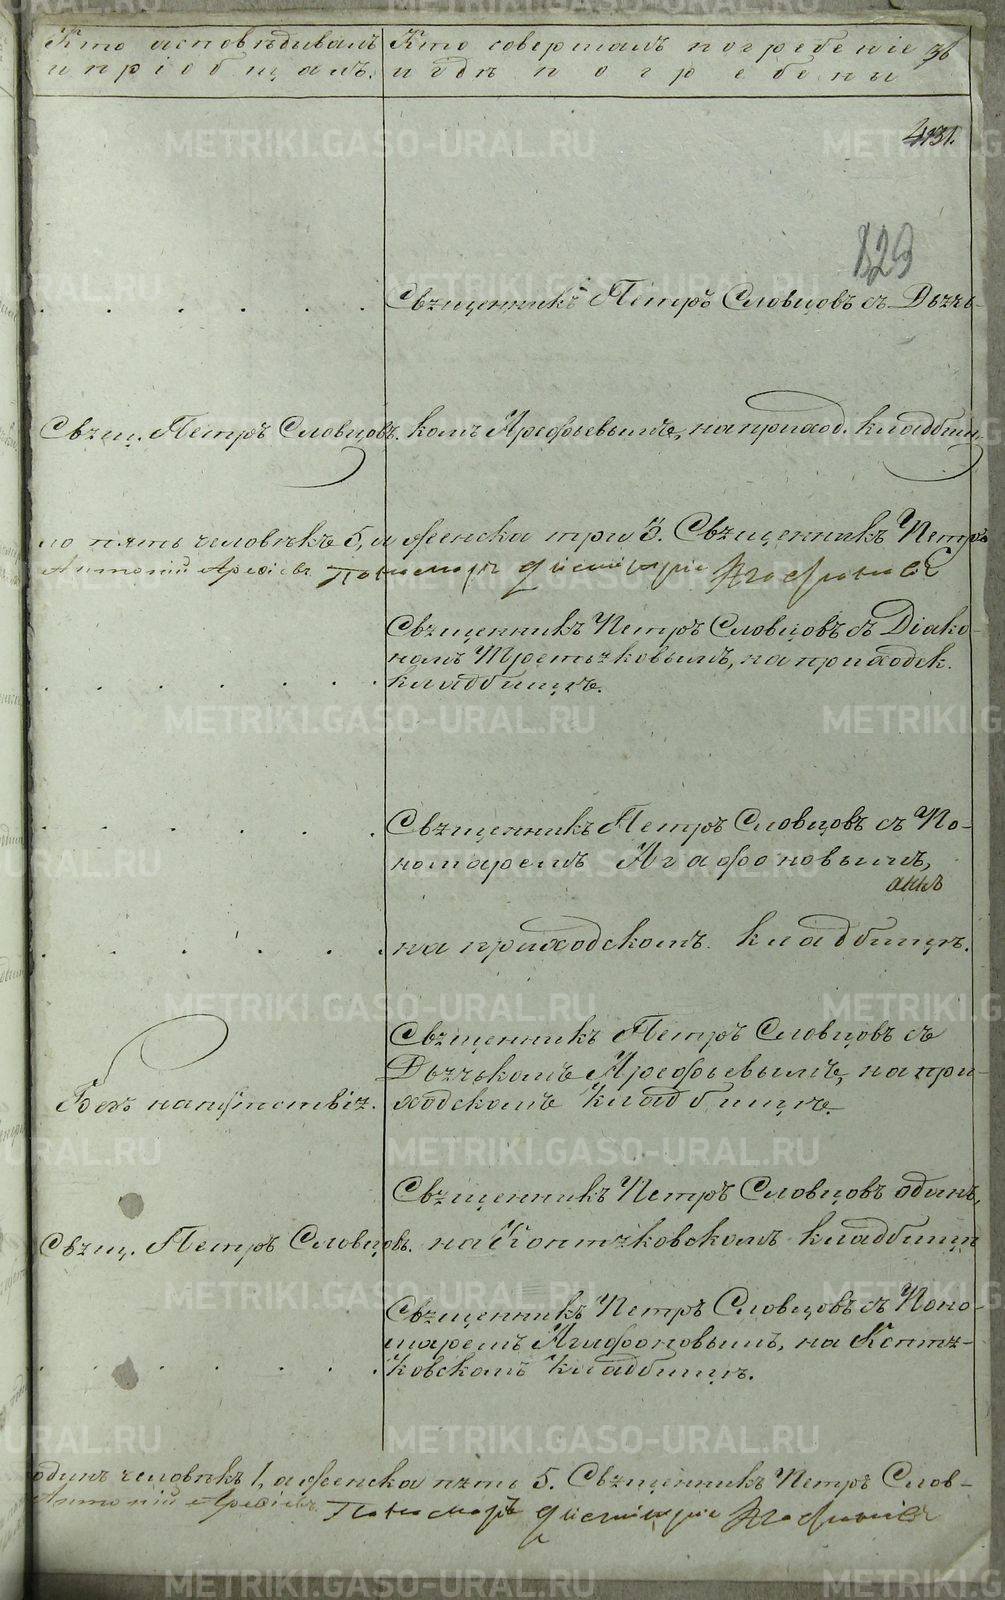 Кто исповѣдывалъ Кто совершалъ погребеніе 36
и пріобщалъ. и гдѣ погребены
431.
129
Священникъ Петръ Словцовъ съ Дьячь-
Свящ. Петръ Словцовъ. комъ Арефьевымъ, на приход. кладбищ.
по пять человѣкъ 5, а женска три 3. Священникъ Петръ
Антоній Арефіевъ Пономарь Димитрій Агафоновъ
Священникъ Петръ Словцовъ съ Діако-
номъ Третьяковымъ, на приходск.
кладбищѣ.
Священникъ Петръ Словцовъ съ По-
номаремъ Агафоновымъ,
на приходскомъ кладбищѣ.
Священникъ Петръ Словцовъ съ
Дьячькомъ Арефьевымъ, на при-
Безъ напутствія. ходскомъ кладбищѣ.
Священникъ Петръ Словцовъ одинъ,
Свящ. Петръ Словцовъ. на Коптяковскомъ кладбищѣ
Священникъ Петръ Словцовъ съ Поно-
маремъ Агафоновымъ, на Коптя-
ковскомъ кладбищѣ.
одинъ человѣкъ 1, а женска пять 5. Священникъ Петръ Слов-
Антоній Арефіевъ Пономарь Димитрій Агафоновъ
METRIKI.GASO-URAL.RU